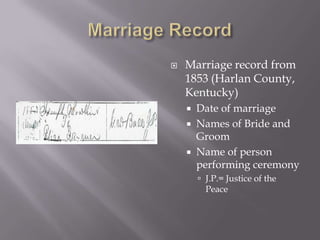 Marriage Record
Marriage record from
1853 (Harlan County,
Kentucky)
Date of marriage
Names of Bride and
Groom
Name of person
performing ceremony
J.P.= Justice of the
Peace